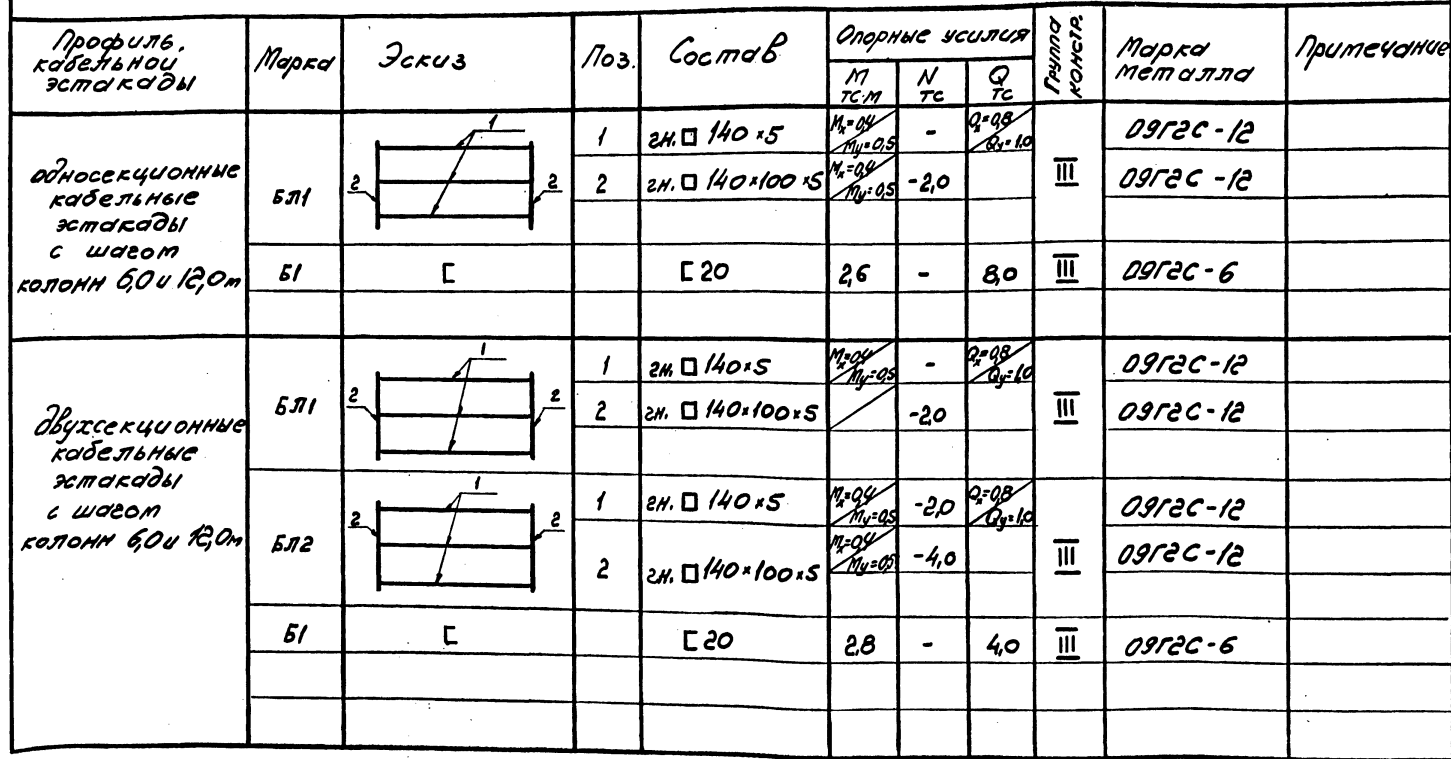 Профиль, кабельной эстакады
Марка
Эскиз
Поз.
Состав
Опорные усилия
М тс·м
N тс
Q тс
Группа констр.
Марка металла
Примечание
односекционные
кабельные
эстакады
с шагом
колонн 6,0 и 12,0м
БЛ1
1
2
2
1 гн. □ 140×5 Mx=0,4 My=0,5 - Qx=0,8 Qy=1,0 09Г2С-12
2 гн. □ 140×100×5 Mx=0,4 My=0,5 -2,0 III 09Г2С-12
Б1 [ [ 20 2,6 - 8,0 III 09Г2С-6
двухсекционные
кабельные
эстакады
с шагом
колонн 6,0 и 12,0м
БЛ1
1
2
2
1 гн. □ 140×5 Mx=0,4 My=0,5 - Qx=0,8 Qy=1,0 09Г2С-12
2 гн. □ 140×100×5 -2,0 III 09Г2С-12
БЛ2
1
2
2
1 гн. □ 140×5 Mx=0,4 My=0,5 -2,0 Qx=0,8 Qy=1,0 09Г2С-12
2 гн. □ 140×100×5 Mx=0,4 My=0,5 -4,0 III 09Г2С-12
Б1 [ [ 20 2,8 - 4,0 III 09Г2С-6